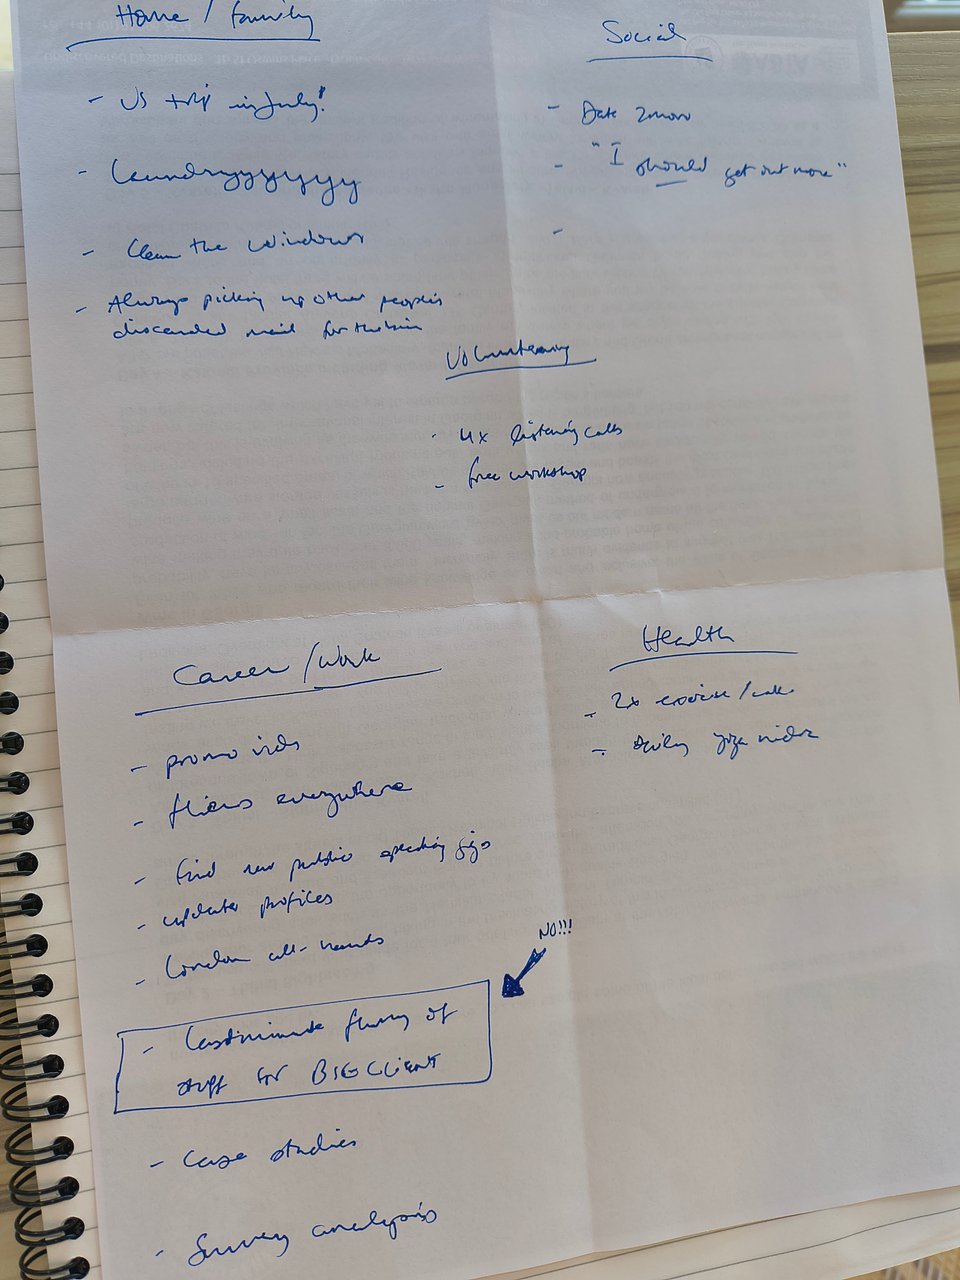 Home / family
- US trip in July!
- Laundryyyyyyy
- Clean the windows
- Always picking up other people's
discarded mail for the bin
Social
- Date 2moro
- "I should get out more"
-
Volunteering
- 4x listening calls
- free workshop
Career / Work
- promo vids
- fliers everywhere
- find new public speaking gigs
- update profiles
- London all-hands
NO!!!
- Last minute flurry of
stuff for BIG CLIENT
- Case studies
- Survey analysis
Health
- 2x exercise / week
- Daily yoga nidra